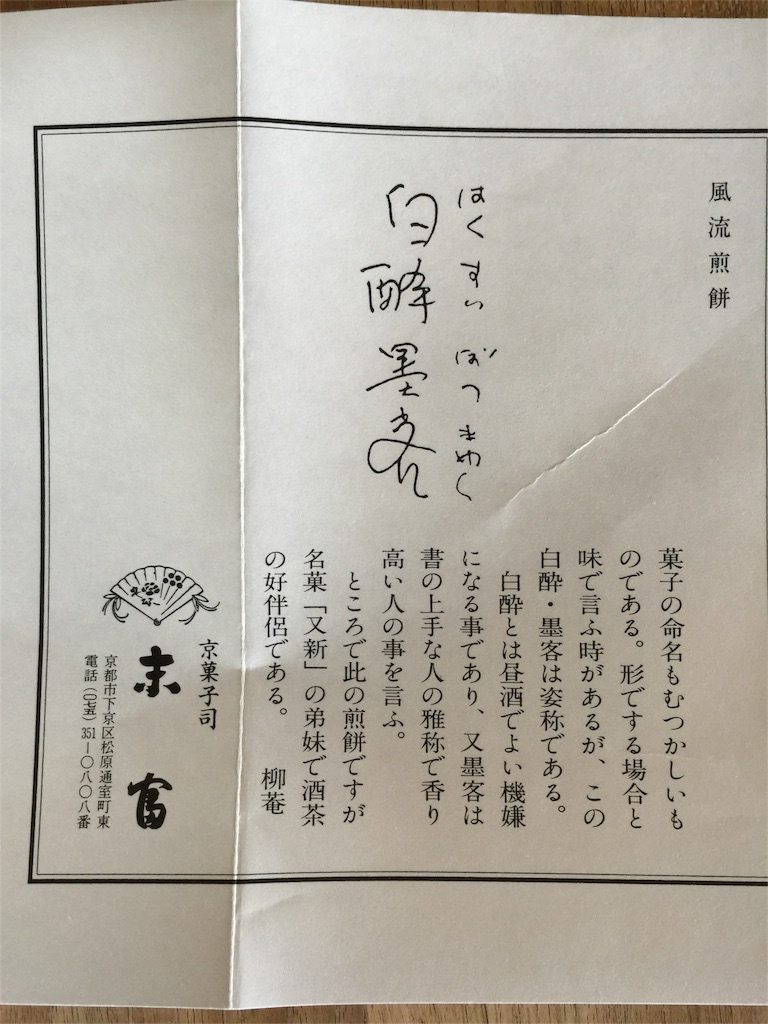 風流煎餅
はくすいぼつきやく
白酔墨客
菓子の命名もむつかしいも
のである。形でする場合と
味で言ふ時があるが、この
白酔・墨客は姿称である。
白酔とは昼酒でよい機嫌
になる事であり、又墨客は
書の上手な人の雅称で香り
高い人の事を言ふ。
ところで此の煎餅ですが
名菓「又新」の弟妹で酒茶
の好伴侶である。
柳菴
京菓子司
末富
京都市下京区松原通室町東
電話(〇七五)351―〇八〇八番